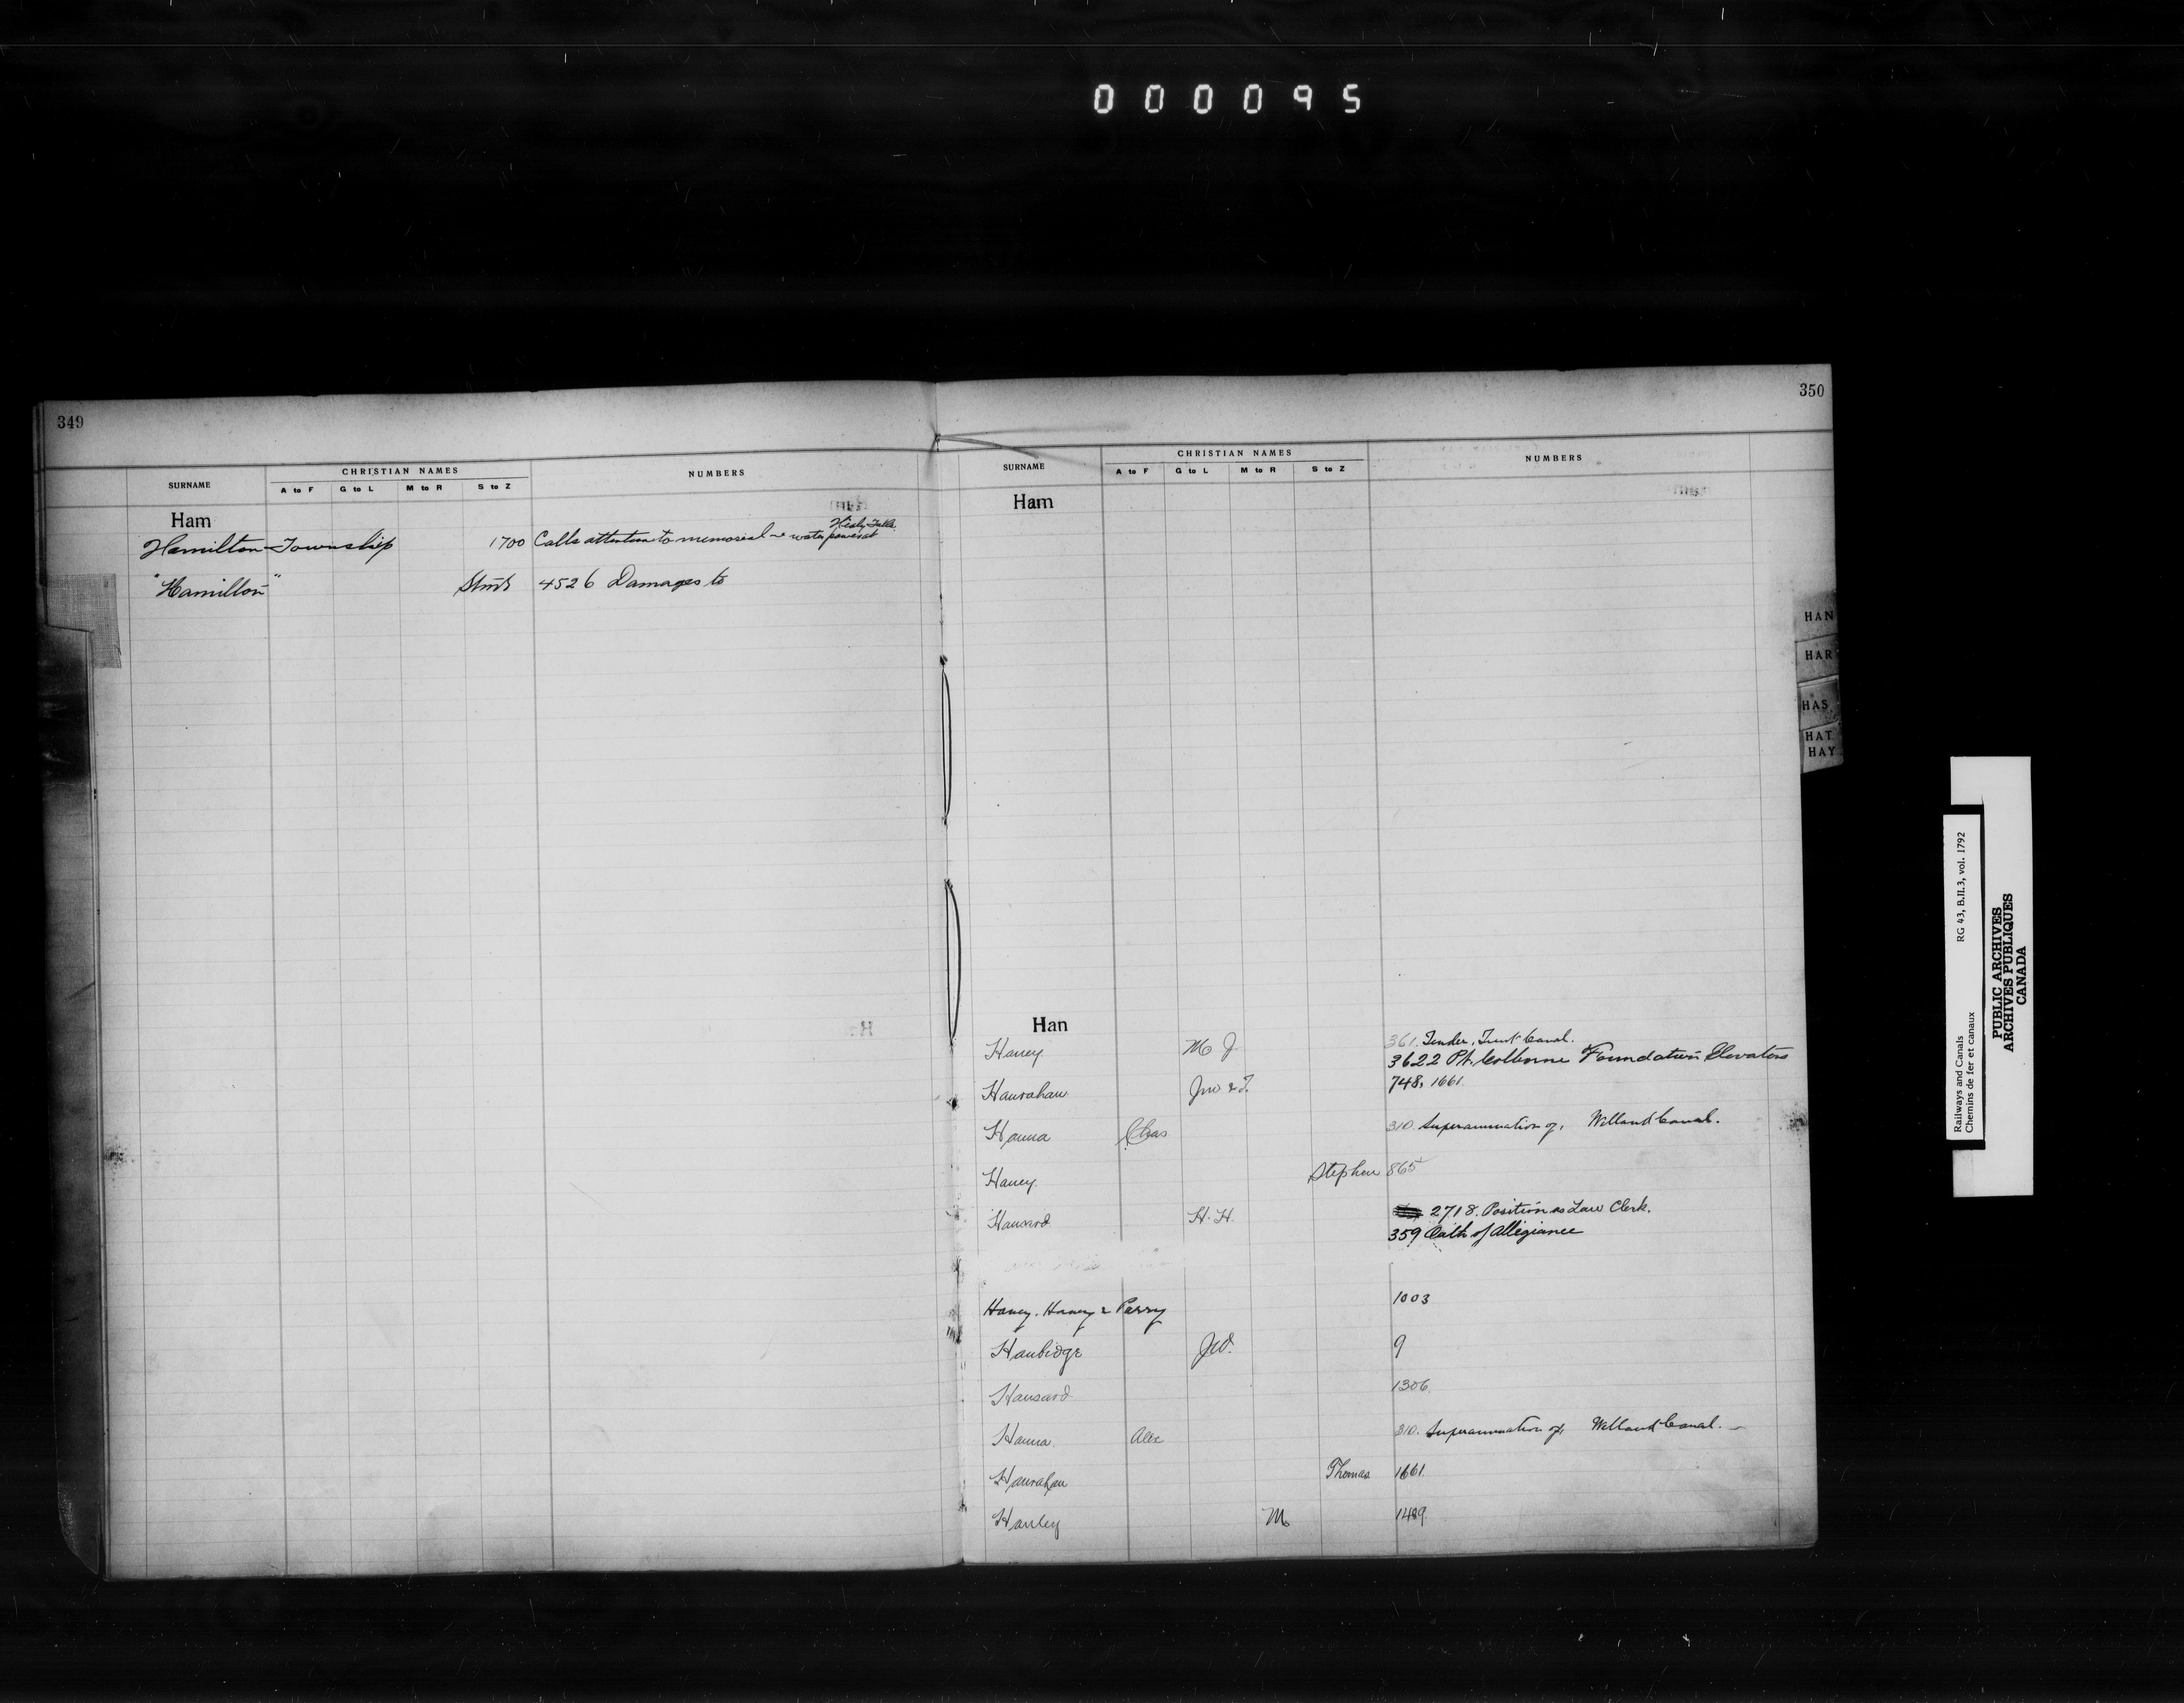 000095
349
SURNAME CHRISTIAN NAMES NUMBERS
A to F G to L M to R S to Z
Ham
Healy Falls
Hamilton Township 1700 Calls attention to memorial re water power at
"Hamilton" Stmr 4526 Damages to
350
SURNAME CHRISTIAN NAMES NUMBERS
A to F G to L M to R S to Z
Ham
Han
361. Tender, Trent Canal.
Haney M J
3622 Pt. Colborne Foundation Elevators
Hanrahan Jno & T. 748, 1661.
Hanna Chas 310. Superannuation of, Welland Canal.
Haney. Stephen 865
Hansard H. H. 2718. Position as Law Clerk.
359 Oath of Allegiance
Haney, Haney & Parry 1003
Hanbidge Jno. 9
Hansard 1306.
Hanna. Alex 310. Superannuation of, Welland Canal.
Hanrahan Thomas 1661.
Hanley M 1489
HAN
HAR
HAS
HAT
HAY
Railways and Canals RG 43, B.II.3, vol. 1792
Chemins de fer et canaux
PUBLIC ARCHIVES
ARCHIVES PUBLIQUES
CANADA